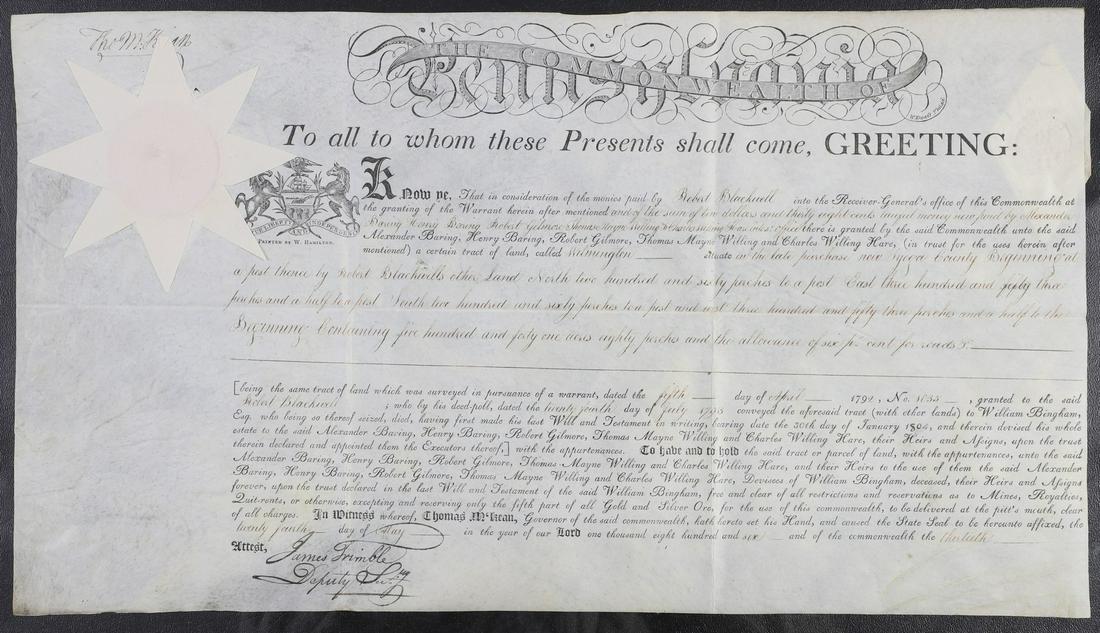 Tho M:Kean
THE COMMONWEALTH OF
Pennsylvania
To all to whom these Presents shall come, GREETING:
KNow ye, That in consideration of the monies paid by Robert Blackwell into the Receiver-General's office of this Commonwealth at
the granting of the Warrant herein after mentioned and of the sum of ten dollars and thirty eight cents lawful money now paid by Alexander
Baring Henry Baring Robert Gilmore Thomas Mayne Willing & Charles Willing Hare into said office there is granted by the said Commonwealth unto the said
Alexander Baring, Henry Baring, Robert Gilmore, Thomas Mayne Willing and Charles Willing Hare, (in trust for the uses herein after
mentioned) a certain tract of land, called situate in the late purchase now Tyoga County Beginning at
VIRTUE LIBERTY AND INDEPENDENCE
PRINTED BY W. HAMILTON.
a post thence by Robert Blackwells other Land North two hundred and sixty perches to a post East three hundred and fifty three
perches and a half to a post South two hundred and sixty perches to a post and west three hundred and fifty three perches and a half to the
Beginning Containing five hundred and forty one acres eighty perches and the allowance of six pr cent for roads &c
[being the same tract of land which was surveyed in pursuance of a warrant, dated the fifth day of April 1792, No. granted to the said
Robert Blackwell ; who by his deed-poll, dated the twenty fourth day of July 1793 conveyed the aforesaid tract (with other lands) to William Bingham,
Esq. who being so thereof seized, died, having first made his last Will and Testament in writing, bearing date the 30th day of January 1804, and therein devised his whole
estate to the said Alexander Baring, Henry Baring, Robert Gilmore, Thomas Mayne Willing and Charles Willing Hare, their Heirs and Assigns, upon the trust
therein declared and appointed them the Executors thereof,] with the appurtenances. To have and to hold the said tract or parcel of land, with the appurtenances, unto the said
Alexander Baring, Henry Baring, Robert Gilmore, Thomas Mayne Willing and Charles Willing Hare, and their Heirs to the use of them the said Alexander
Baring, Henry Baring, Robert Gilmore, Thomas Mayne Willing and Charles Willing Hare, Devisees of William Bingham, deceased, their Heirs and Assigns
forever, upon the trust declared in the last Will and Testament of the said William Bingham, free and clear of all restrictions and reservations as to Mines, Royalties,
Quit-rents, or otherwise, excepting and reserving only the fifth part of all Gold and Silver Ore, for the use of this commonwealth, to be delivered at the pitt's mouth, clear
of all charges. In Witness whereof, Thomas M'Kean, Governor of the said commonwealth, hath hereto set his Hand, and caused the State Seal to be hereunto affixed, the
twenty fourth day of May in the year of our Lord one thousand eight hundred and six and of the commonwealth the thirtieth
Attest,
James Trimble
Deputy Secry